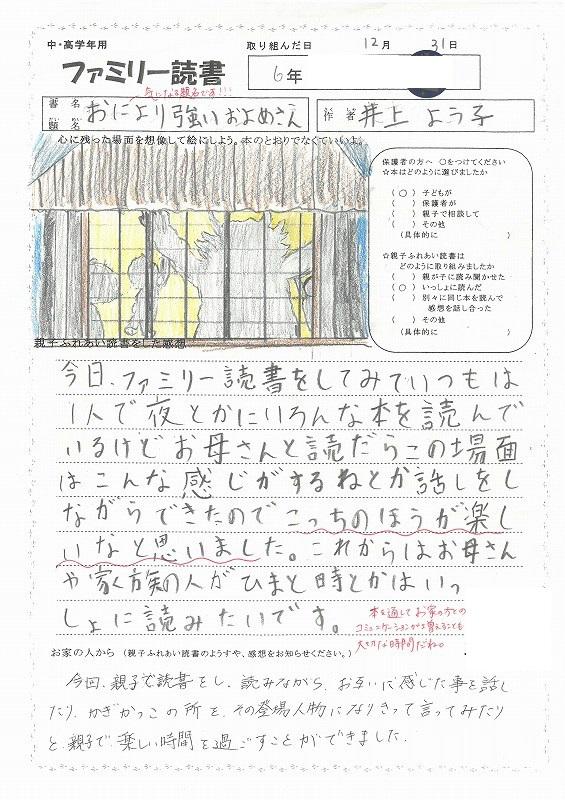 中・高学年用
取り組んだ日 12月 31日
ファミリー読書
6年
気になる題名です!!!
書名 だいめい 題名
おにより強いおよめさん
作者 井上 よう子
心に残った場面を想像して絵にしよう。本のとおりでなくていいよ。
保護者の方へ ○をつけてください
☆本はどのように選びましたか
(○) 子どもが
( ) 保護者が
( ) 親子で相談して
( ) その他
(具体的に )
☆親子ふれあい読書は
どのように取り組みましたか
( ) 親が子に読み聞かせた
(○) いっしょに読んだ
( ) 別々に同じ本を読んで
感想を話し合った
( ) その他
(具体的に )
親子ふれあい読書をした感想
今日、ファミリー読書をしてみていつもは
1人で夜とかにいろんな本を読んで
いるけどお母さんと読だらこの場面
はこんな感じがするねとか話しをし
ながらできたのでこっちのほうが楽し
いなと思いました。これからはお母さん
や家く族の人がひまと時とかはいっ
しょに読みたいです。
本を通してお家の方との
コミュニケーションが増えることも
大切な時間だね。
お家の人から (親子ふれあい読書のようすや、感想をお知らせください。)
今回、親子で読書をし、読みながら、お互いに感じた事を話し
たり、かぎかっこの所を、その登場人物になりきって言ってみたり
と、親子で楽しい時間を過ごすことができました。